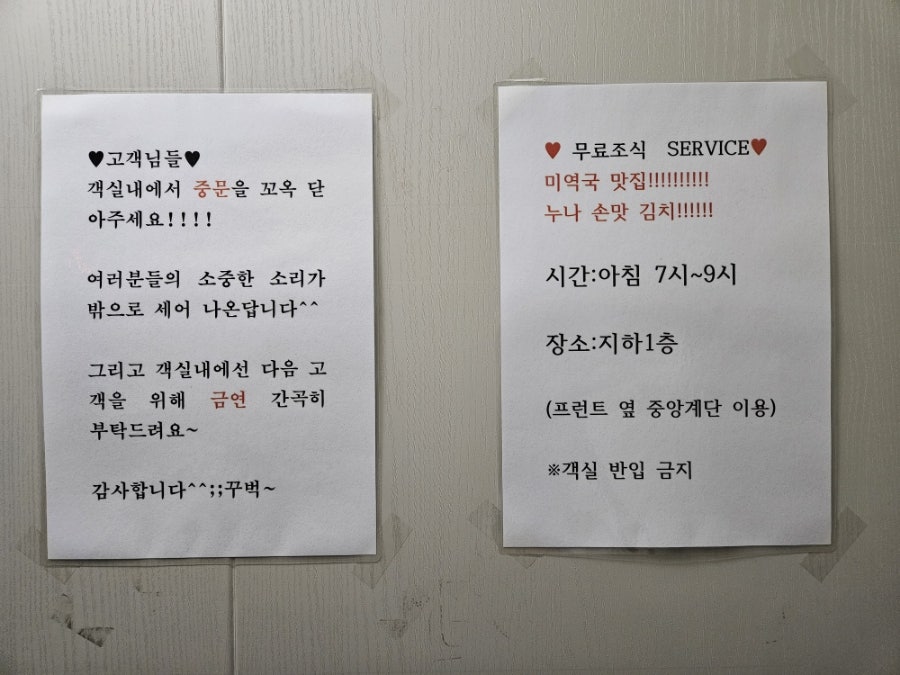 ♥고객님들♥
객실내에서 중문을 꼬옥 단
아주세요!!!!
여러분들의 소중한 소리가
밖으로 세어 나온답니다^^
그리고 객실내에선 다음 고
객을 위해 금연 간곡히
부탁드려요~
감사합니다^^;;꾸벅~
♥ 무료조식 SERVICE♥
미역국 맛집!!!!!!!!!!
누나 손맛 김치!!!!!!
시간:아침 7시~9시
장소:지하1층
(프런트 옆 중앙계단 이용)
※객실 반입 금지